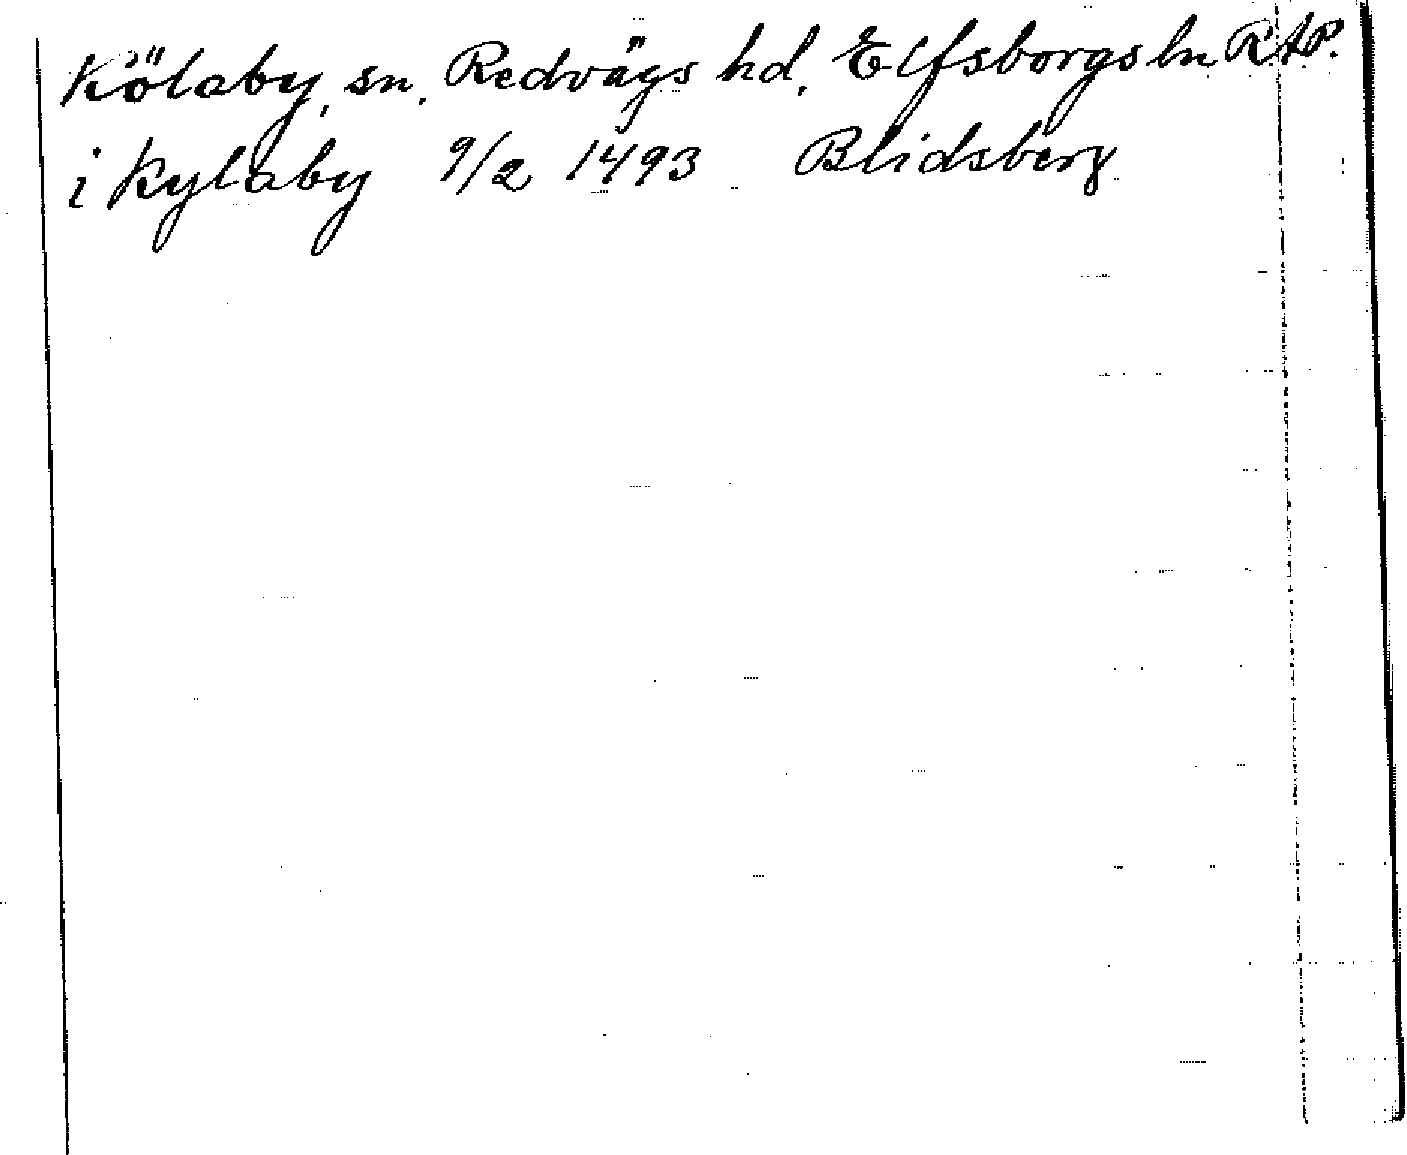 Kölaby, sn. Redvägs hd. Elfsborgs ln RAP.
i Kylaby 9/2 1493 Blidsberg